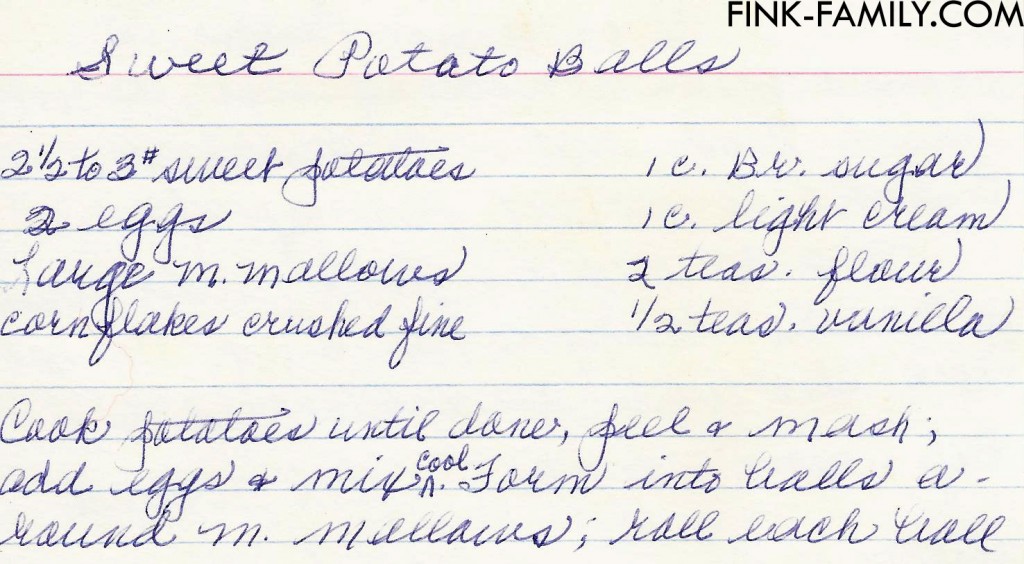 FINK-FAMILY.COM
Sweet Potato Balls
2 1/2 to 3# sweet potatoes 1 c. Br. sugar
2 eggs 1 c. light cream
Large m. mallows 2 teas. flour
corn flakes crushed fine 1/2 teas. vanilla
Cook potatoes until done, peel & mash;
add eggs & mix cool. Form into balls a-
round m. mallows; roll each ball